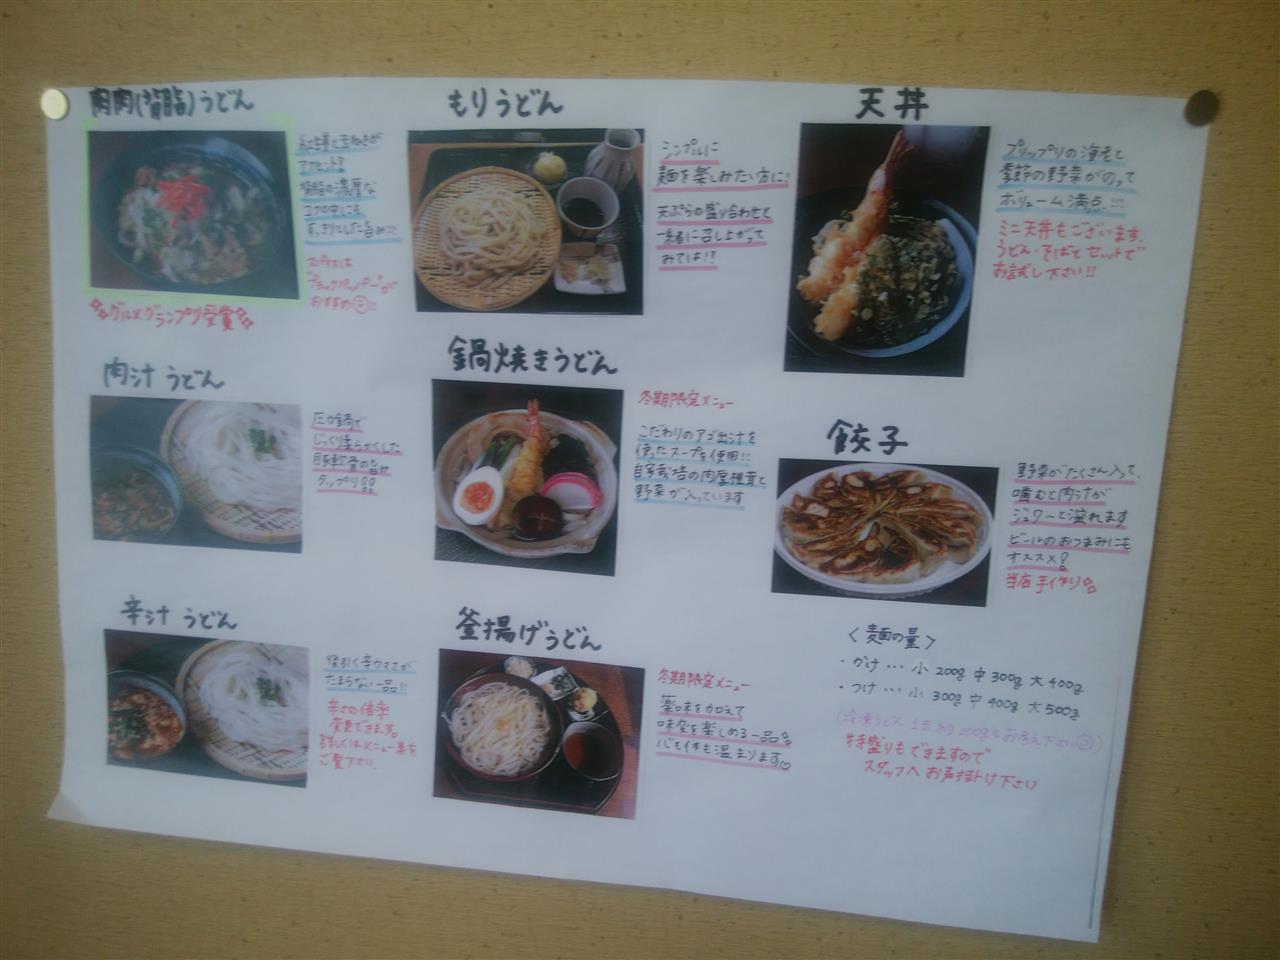 肉肉(背脂)うどん
紅生姜と玉ねぎが
アクセント?
背脂の濃厚な
コクの中にも
すっきりとした旨み
スパイスは
"ブラックペッパー"が
おすすめ
グルメグランプリ受賞
肉汁 うどん
圧力鍋で
じっくり柔らかくした
豚軟骨の旨味
タップリ!!
辛汁 うどん
後引く辛ウマさが
たまらない一品!!
辛さの倍率
変更できます。
詳しくはメニュー表を
ご覧下さい。
もりうどん
シンプルに
麺を楽しみたい方に!
天ぷらの盛り合わせと
一緒に召し上がって
みては!?
鍋焼きうどん
冬期限定メニュー
こだわりのアゴ出汁を
使ったスープを使用!!
自家栽培の肉厚椎茸と
野菜が入っています
釜揚げうどん
冬期限定メニュー
薬味を加えて
味変を楽しめる一品
心も体も温まります♡
天丼
プリップリの海老と
季節の野菜がのって
ボリューム満点…!!!
ミニ天丼もございます。
うどん・そばとセットで
お試し下さい!!
餃子
野菜がたくさん入って、
噛むと肉汁が
ジュワ〜と溢れます
ビールのおつまみにも
オススメ!
当店手作り
〈麺の量〉
・かけ… 小 200g 中 300g 大 400g
・つけ… 小 300g 中 400g 大 500g
(冷凍うどん 1玉 約200gとお考え下さい)
特盛りもできますので
スタッフへお声掛け下さい